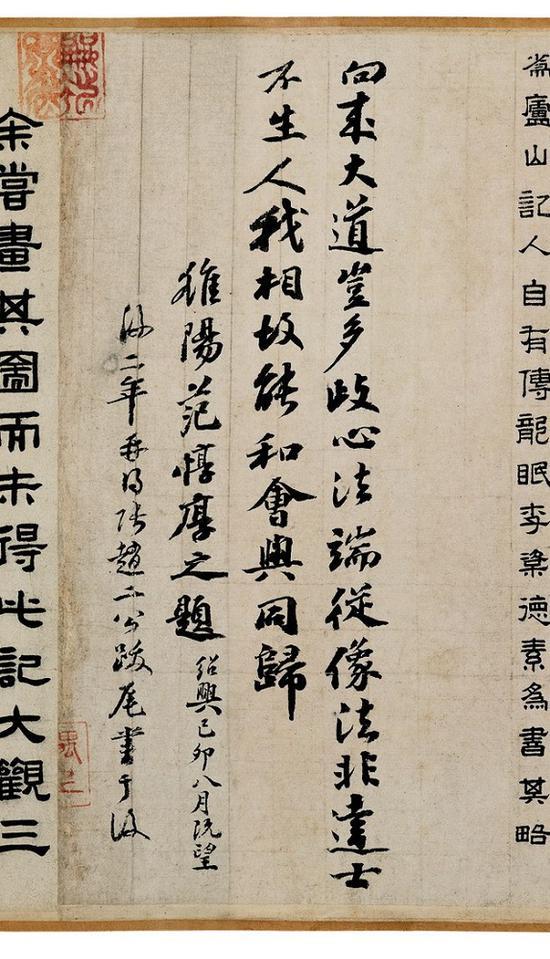 嵩廬山記人自有傳龍眠李粲德素爲書其略
向來大道豈多歧心法端從像法非達士
不生人我相故能和會與同歸
睢陽范惇厚之題 紹興己卯八月既望
後二年再得張趙二公跋尾書于後
余嘗畫其圖而未得此記大觀三